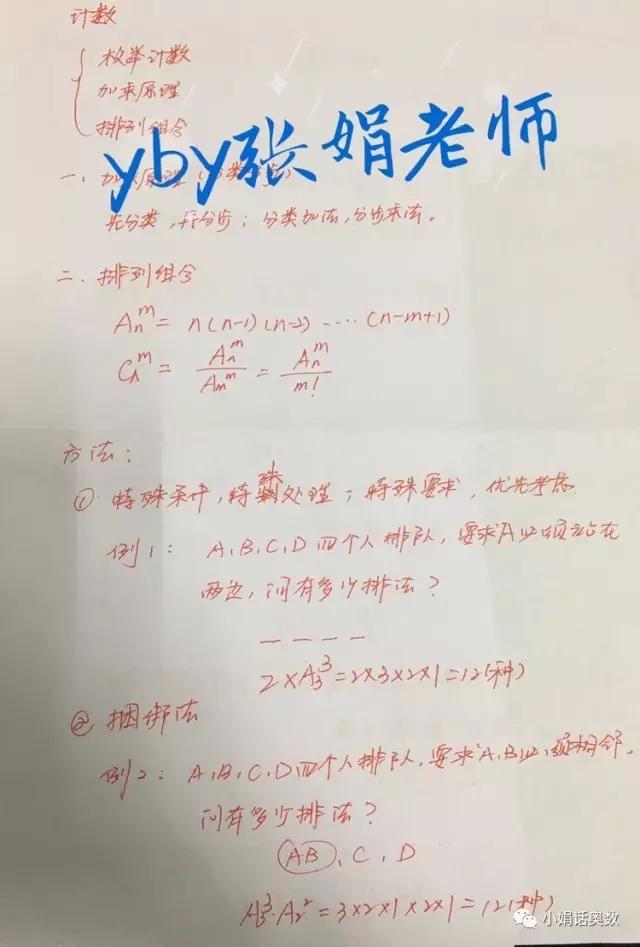 计数
枚举计数
加乘原理
排列组合
yby张娟老师
一、加乘原理
先分类,再分步;分类加法,分步乘法。
二、排列组合
Aₙᵐ = n(n-1)(n-2)……(n-m+1)
Cₙᵐ = Aₙᵐ/Aₘᵐ = Aₙᵐ/m!
方法:
① 特殊条件,特殊处理;特殊要求,优先考虑.
例1: A、B、C、D四个人排队,要求A必须站在
两边,问有多少排法?
— — — —
2×A₃³=2×3×2×1=12(种)
② 捆绑法
例2: A、B、C、D四个人排队,要求A、B必须相邻,
问有多少排法?
AB、C、D
A₃³·A₂²=3×2×1×2×1=12(种)
小娟话奥数